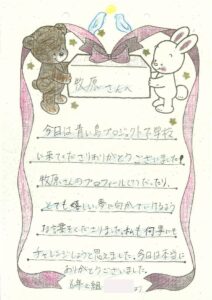 牧原さんへ
今日は青い鳥プロジェクトで学校
に来てくださりありがとうございました!
牧原さんのプロフィール
とても嬉しい、夢に向かって
お言葉をくださりました。私も何事にも
チャレンジしようと思えました。今日は本当に
ありがとうございました。
6年 組